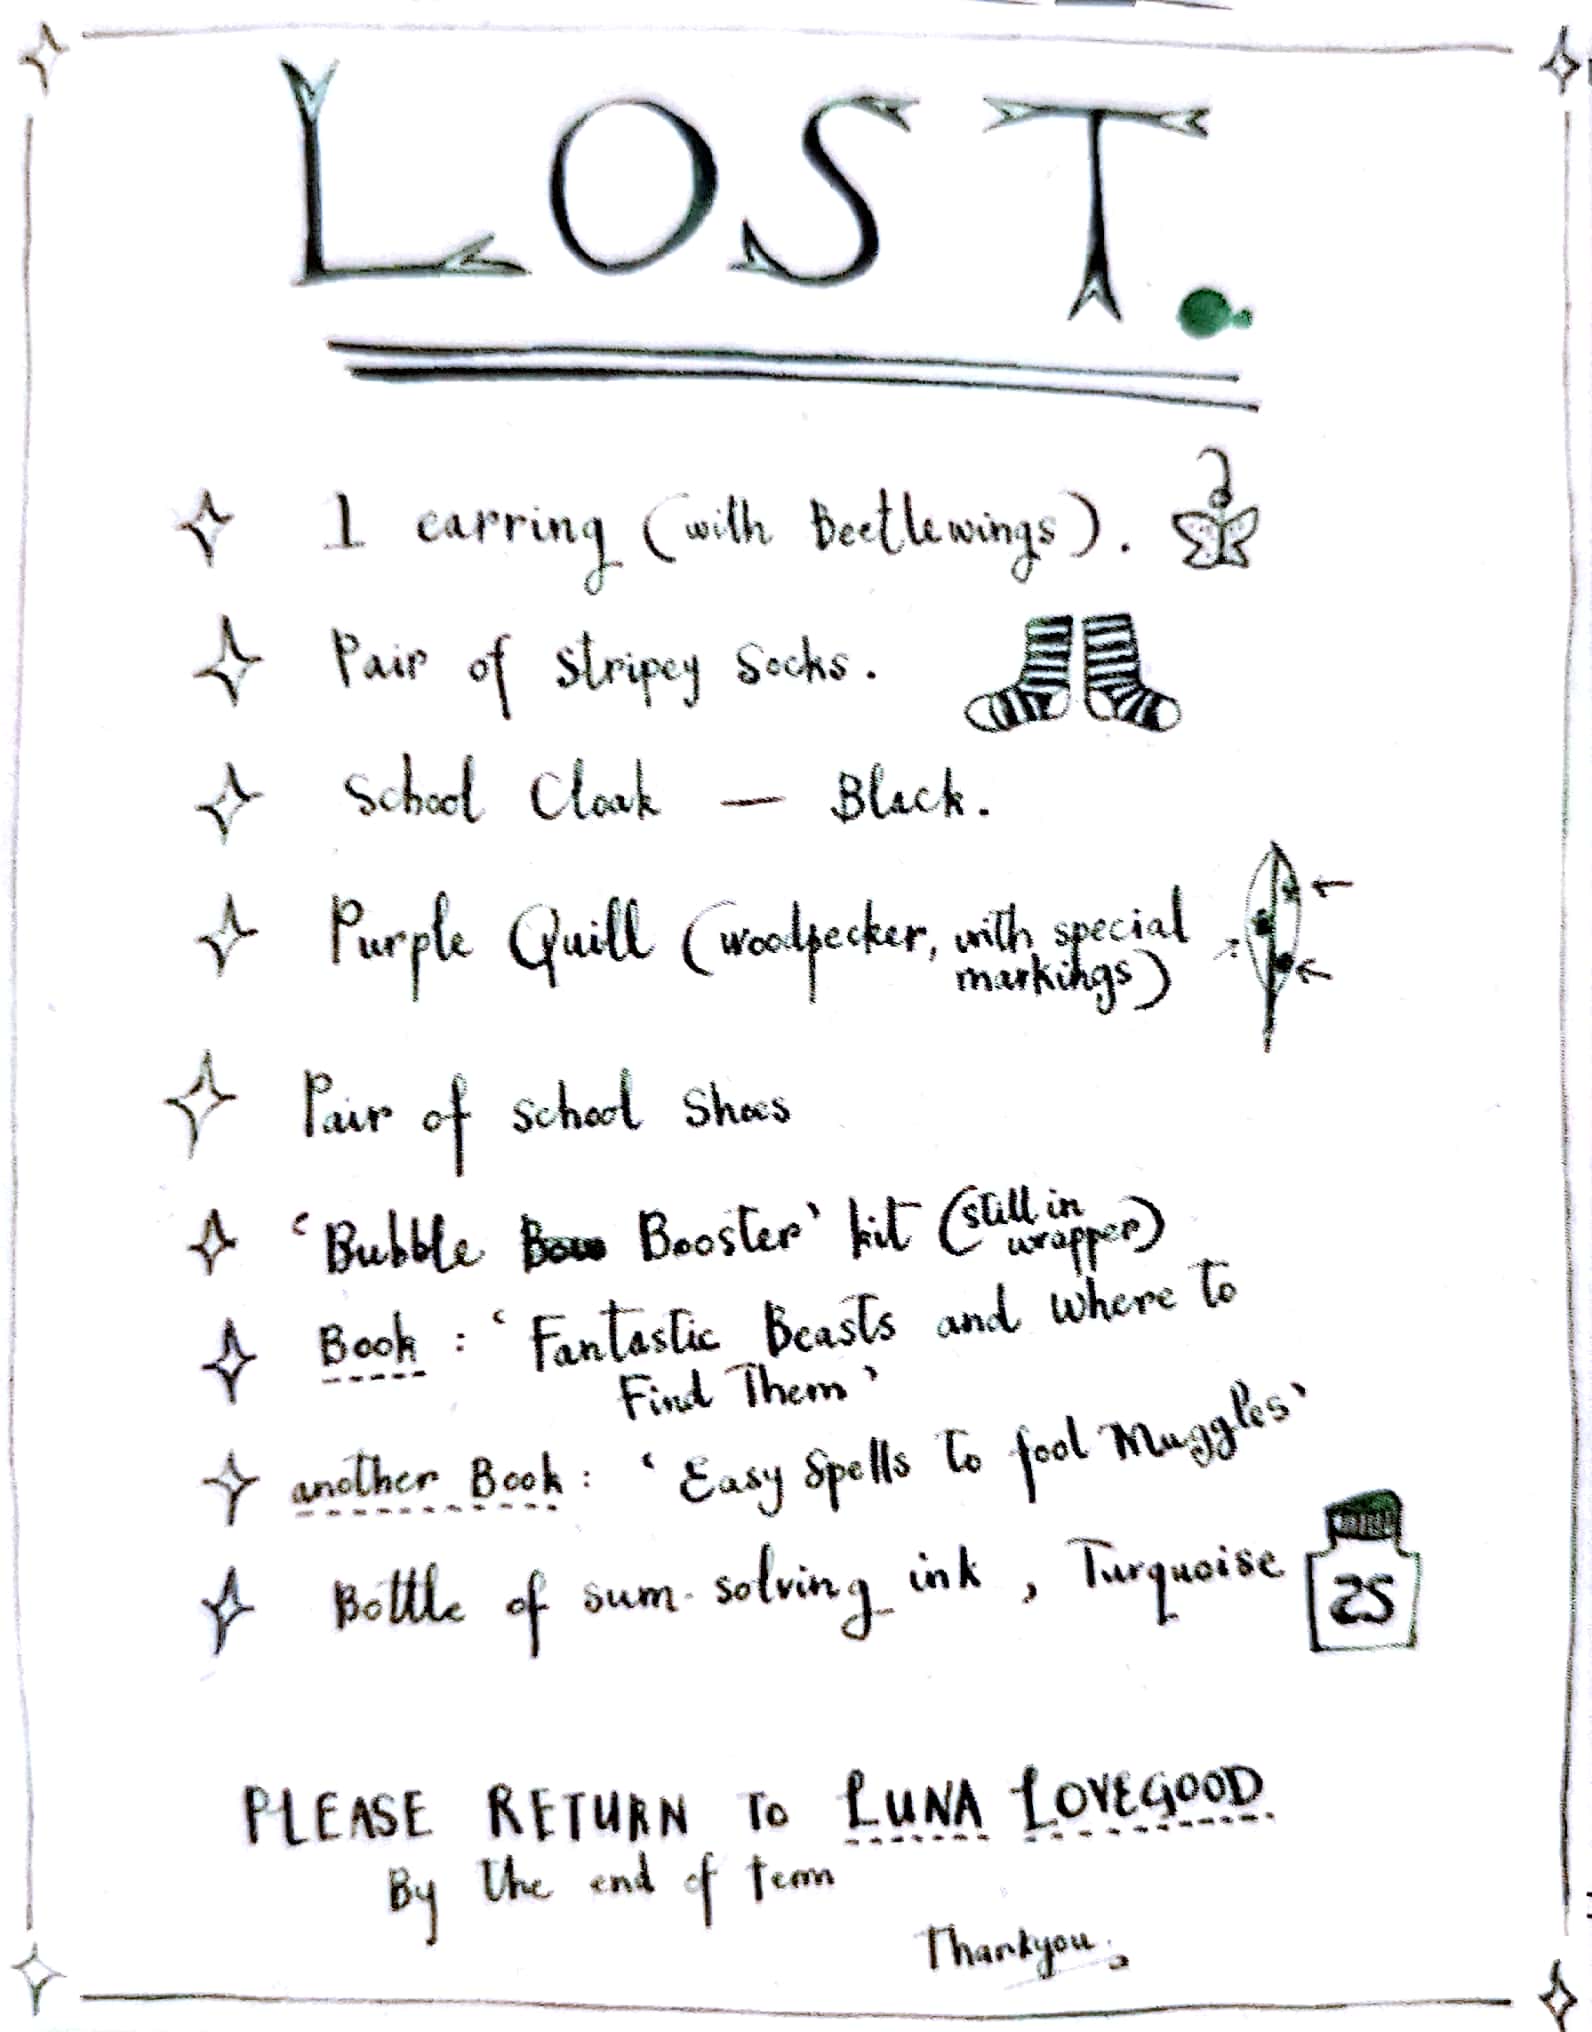 LOST.
1 earring (with Beetlewings).
Pair of Stripey Socks.
School Cloak — Black.
Purple Quill (woodpecker, with special
markings)
Pair of school Shoes
'Bubble Booster' kit (still in
wrapper)
Book : 'Fantastic Beasts and where to
Find Them'
another Book : 'Easy Spells to fool Muggles'
Bottle of sum-solving ink, Turquoise
25
PLEASE RETURN To LUNA LOVEGOOD.
By the end of term
Thankyou.